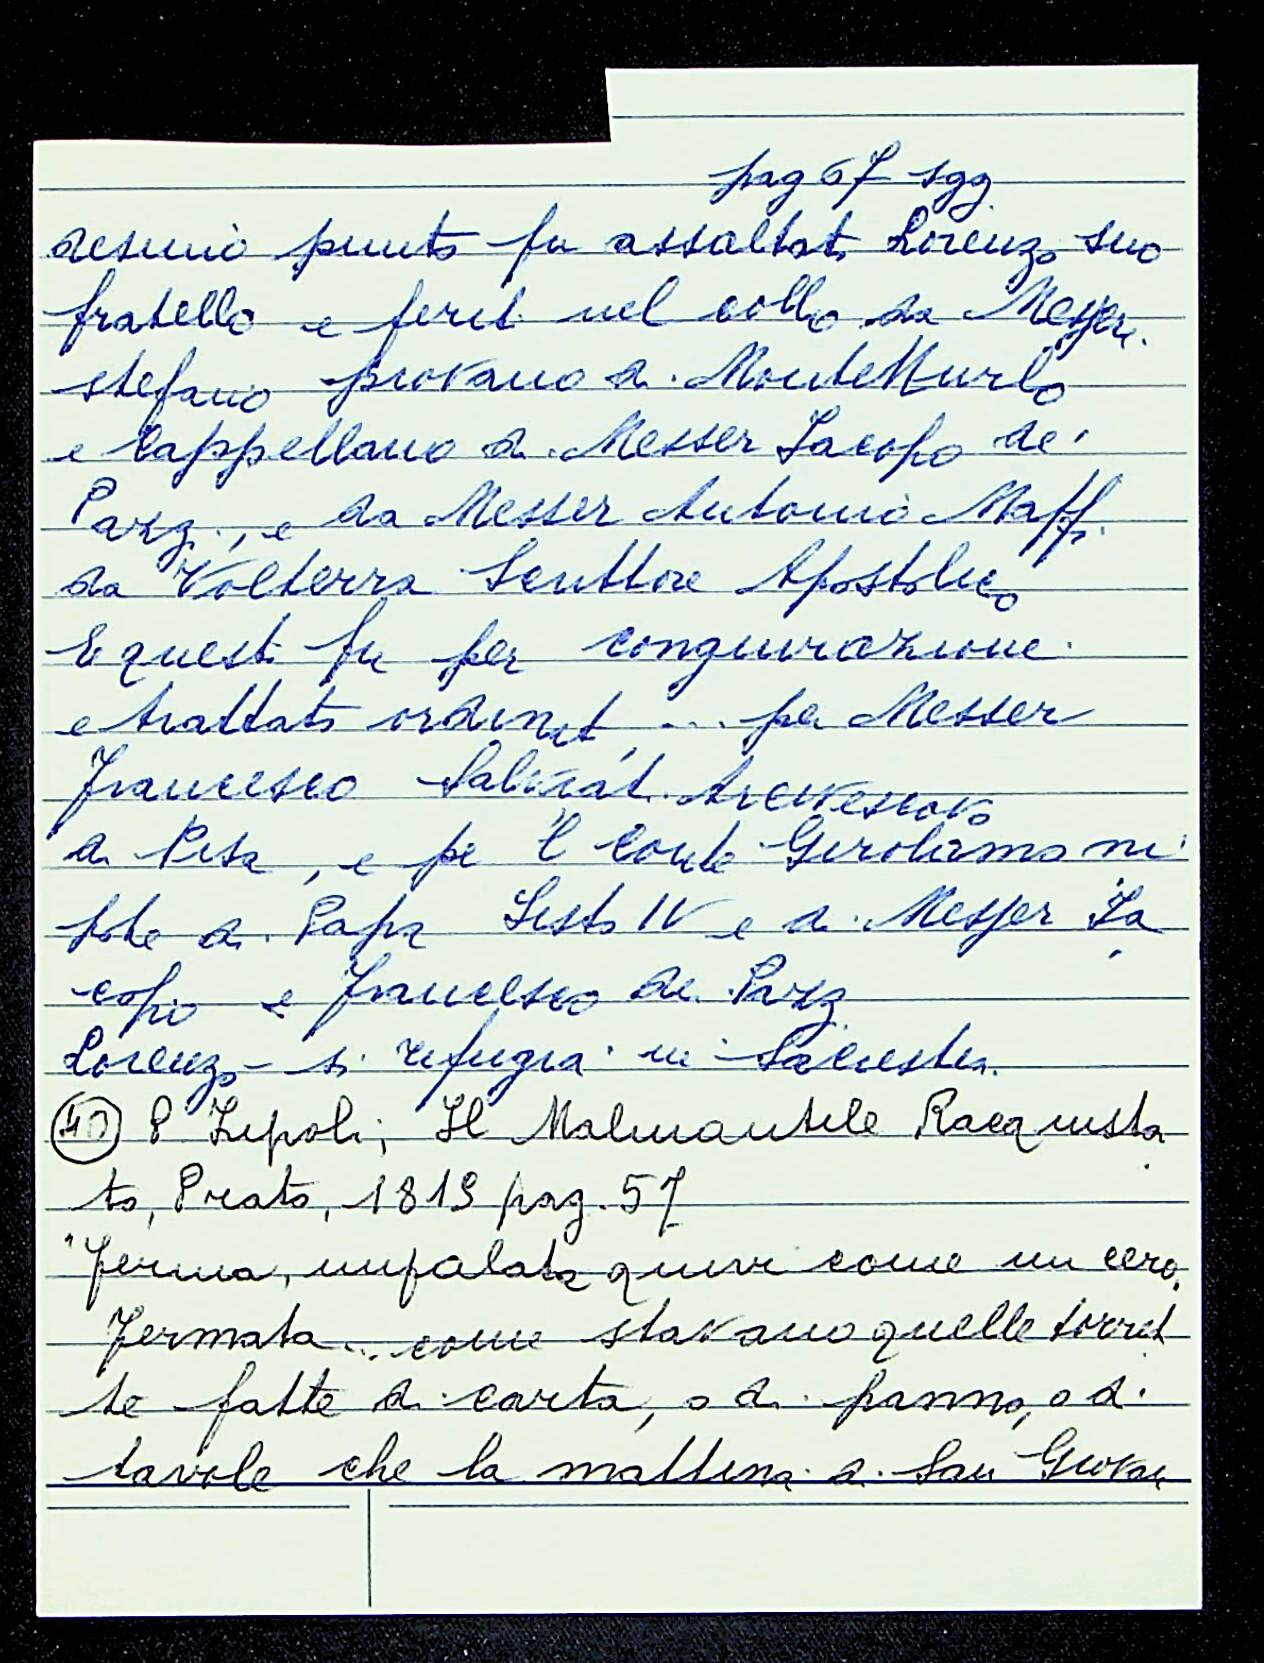 pag 67 sgg.
desimo punto fu assaltato Lorenzo suo
fratello e ferito nel collo da Messer
Stefano piovano di MonteMurlo
e Cappellano di Messer Jacopo de'
Pazzi, e da Messer Antonio Maffi
da Volterra Scrittore Apostolico
E questo fu per congiurazione
e trattato ordinato ... per Messer
Francesco Salviati Arcivescovo
di Pisa, e pe 'l Conte Girolamo ni
pote di Papa Sisto IV e di Messer Ja
copo e Francesco de Pazzi
Lorenzo si rifugia in Sacrestia.
(40) P Lipoli; Il Malmantile Racquista
to, Prato, 1815 pag. 57
"Ferma, impalata quivi come un cero.
Fermata... come stavano quelle torret
te fatte di carta, o di panno, o di
tavole che la mattina di San Giovan